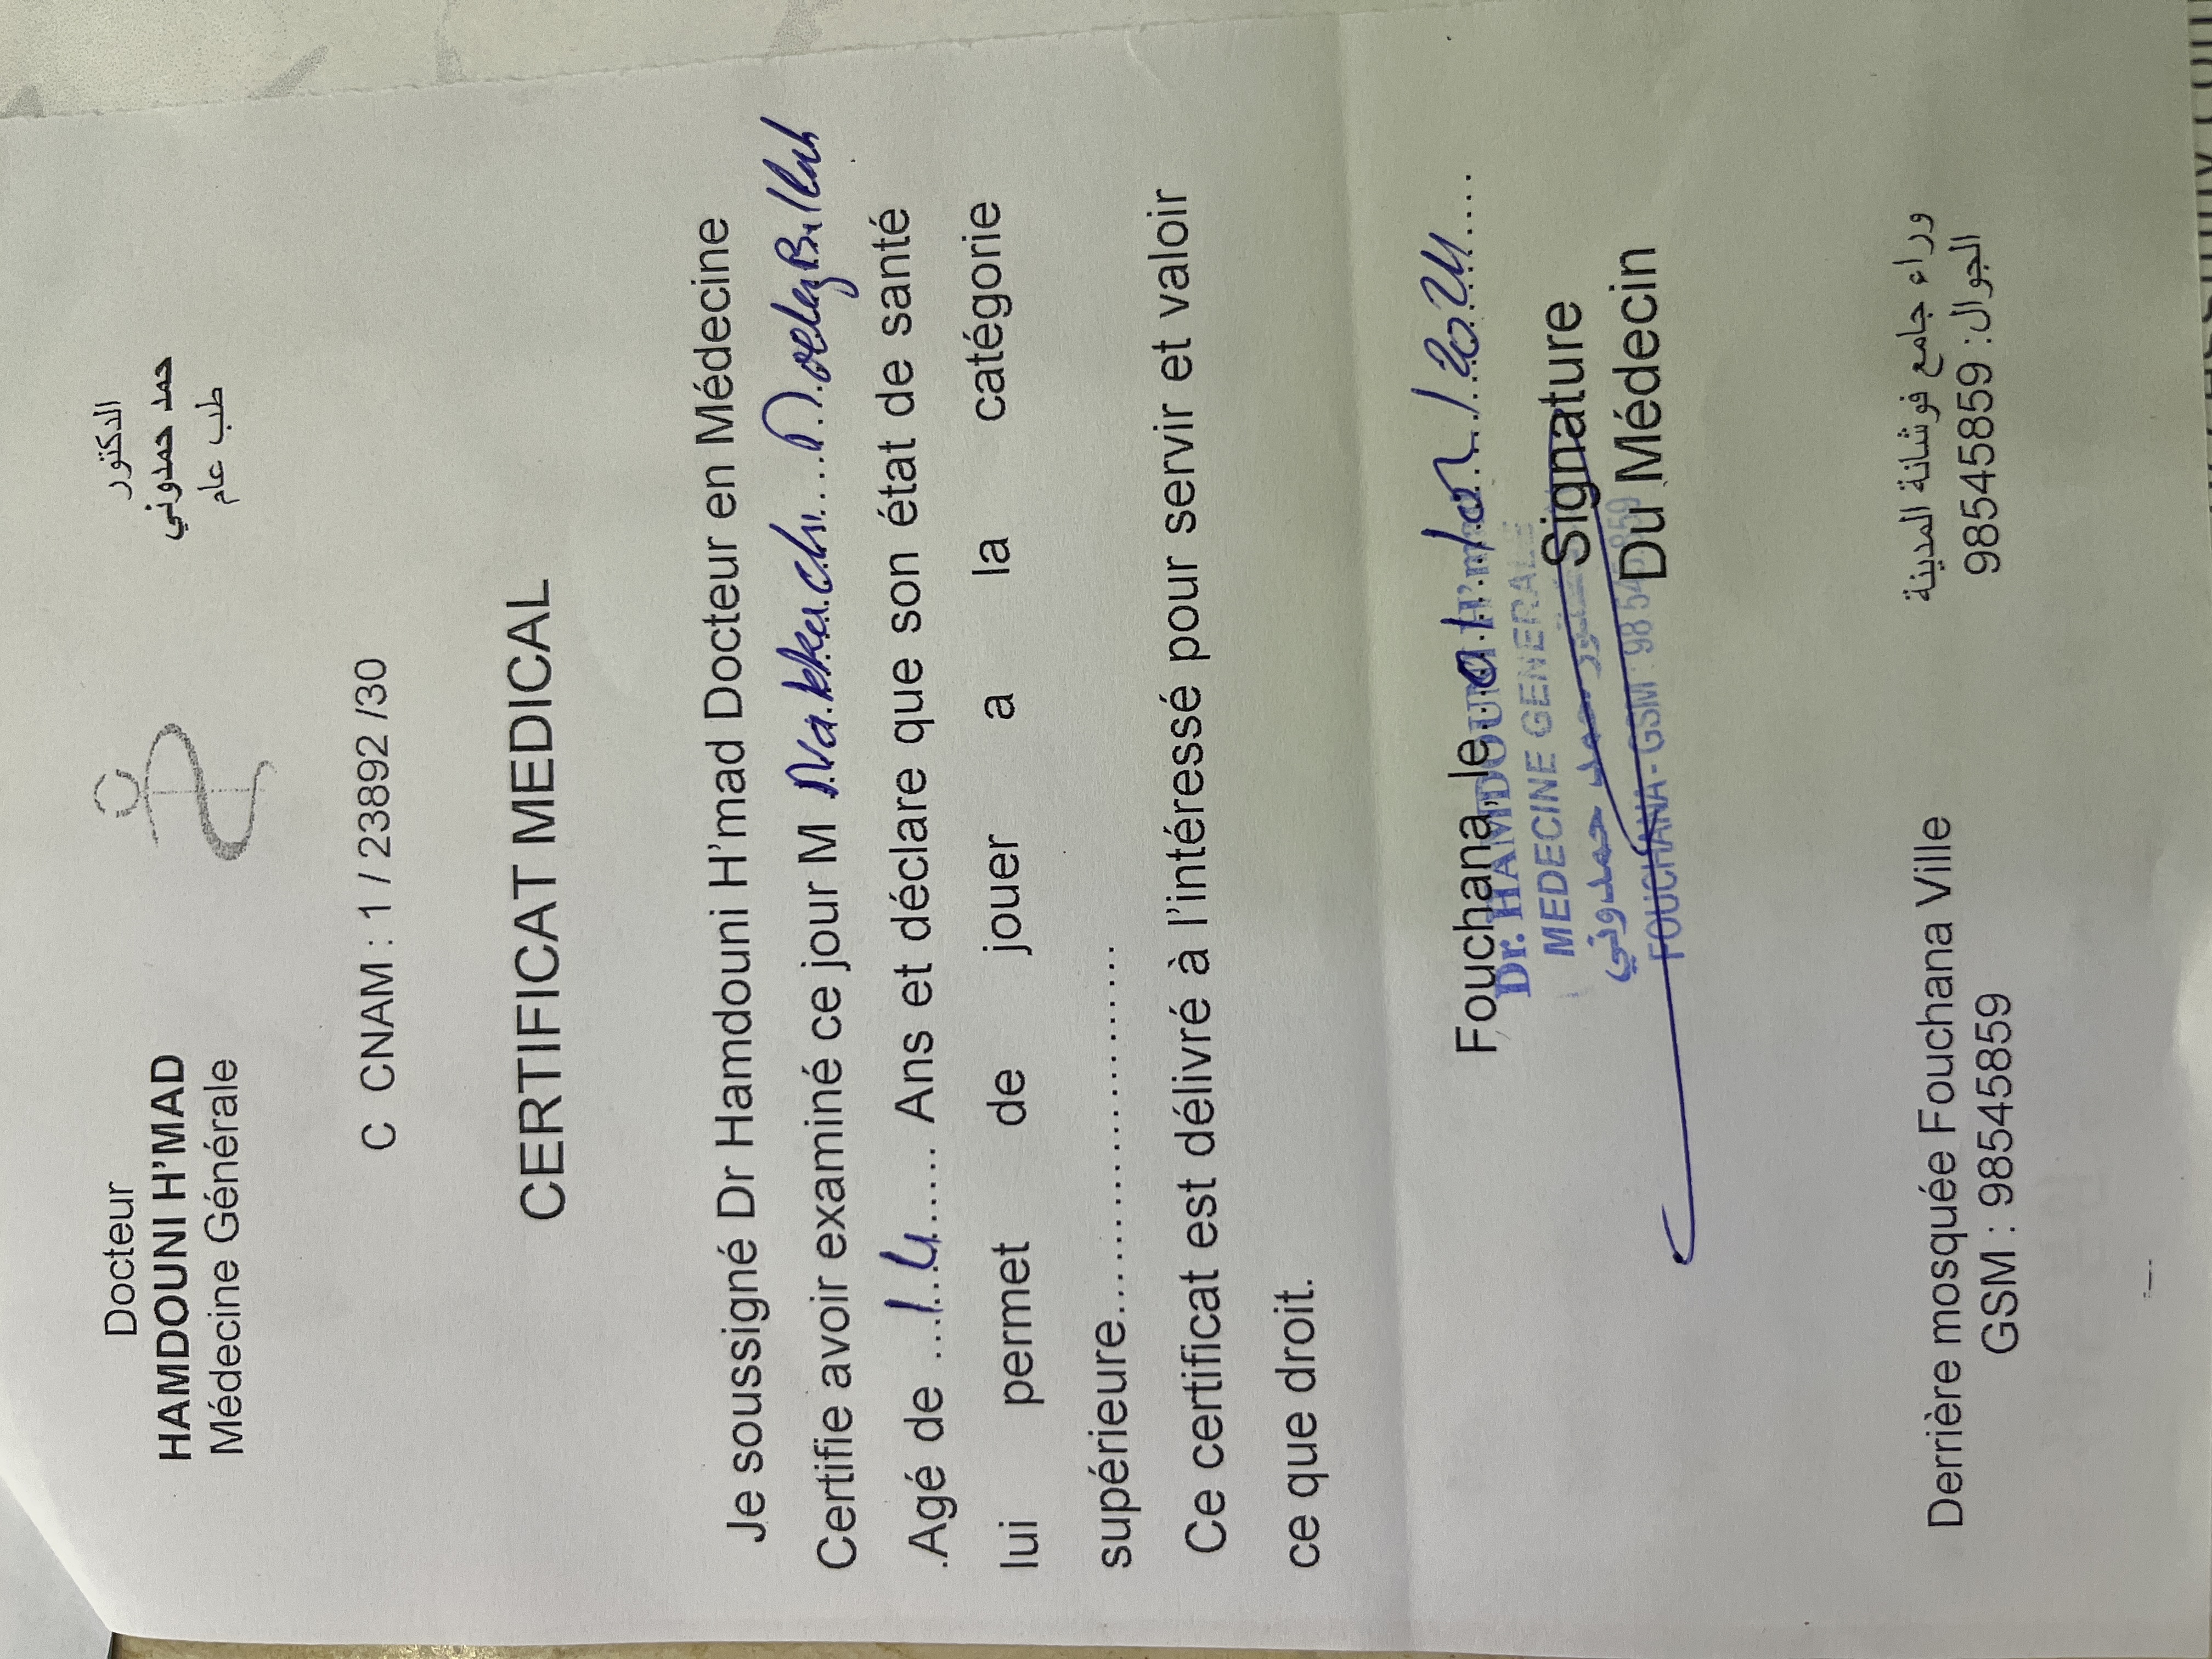 Docteur
HAMDOUNI H'MAD
Médecine Générale
الدكتور
حمد حمدوني
طب عام
C CNAM : 1 / 23892 /30
CERTIFICAT MEDICAL
Je soussigné Dr Hamdouni H'mad Docteur en Médecine
Certifie avoir examiné ce jour M
.Agé de ...14...... Ans et déclare que son état de santé
lui permet de jouer a la catégorie
supérieure..............................
Ce certificat est délivré à l'intéressé pour servir et valoir
ce que droit.
Fouchana le / 2024
Dr. HAMDOUNI H'mad
MEDECINE GENERALE
الدكتور حمد حمدوني
FOUCHANA - GSM : 98 545 859
Signature
Du Médecin
Derrière mosquée Fouchana Ville
GSM : 98545859
وراء جامع فوشانة المدينة
الجوال: 98545859